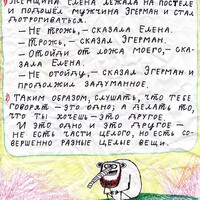 1) ЖЕНЩИНА ЕЛЕНА ЛЕЖАЛА НА ПОСТЕЛЕ
И ПОДОШЁЛ МУЖЧИНА ЭГЕРМАН И СТАЛ
ДОТРОГИВАТЬСЯ.
– НЕ ТРОЖЬ, – СКАЗАЛА ЕЛЕНА.
– ТРОЖЬ, – СКАЗАЛ ЭГЕРМАН.
– ОТОЙДИ ОТ ЛОЖА МОЕГО, – СКА-
ЗАЛА ЕЛЕНА.
– НЕ ОТОЙДУ, – СКАЗАЛ ЭГЕРМАН И
ПРОДОЛЖИЛ ЗАДУМАННОЕ.
2) ТАКИМ ОБРАЗОМ, СЛУШАТЬ, ЧТО ТЕБЕ
ГОВОРЯТ – ЭТО ОДНО, А ДЕЛАТЬ ТО,
ЧТО ТЫ ХОЧЕШЬ – ЭТО ДРУГОЕ.
И ЭТО ОДНО И ЭТО ДРУГОЕ –
НЕ ЕСТЬ ЧАСТИ ЦЕЛОГО, НО ЕСТЬ СО-
ВЕРШЕННО РАЗНЫЕ ЦЕЛЫЕ ВЕЩИ.